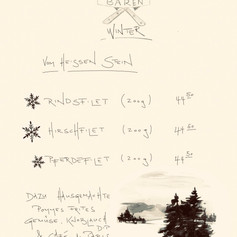 BÄREN
WINTER
VOM HEISSEN STEIN
RINDSFILET (200g) 44 50
HIRSCHFILET (200g) 44 50
PFERDEFILET (200g) 44 50
DAZU HAUSGEMACHTE
POMMES FRITES
GEMÜSE, KNOBLAUCH DIP
& CAFÉ DE PARIS